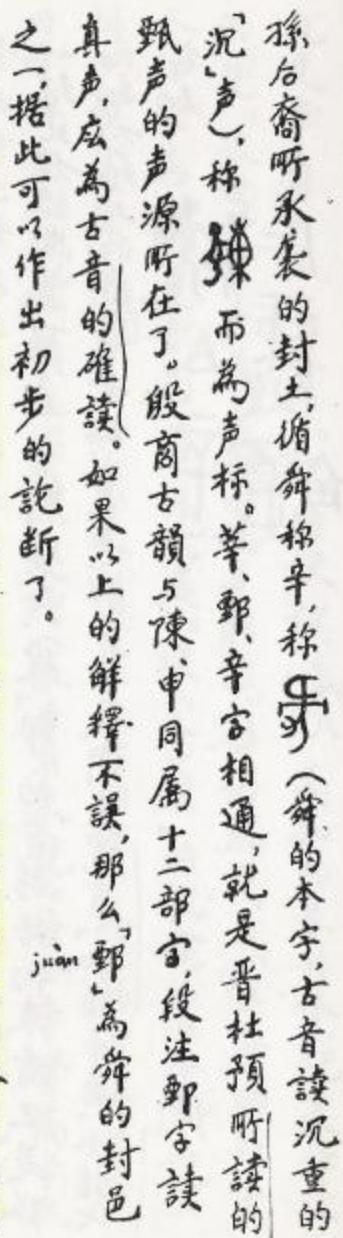 孫后裔所承袭的封土，循舜称辛，称（舜的本字，古音讀沉重的
「沉」声），称 而為声标。莘、鄄、辛字相通，就是晋杜預所讀的
甄声的声源所在了。殷商古韻与陳、申同属十二部字，段注鄄字讀
真声，应為古音的確讀。如果以上的解釋不誤，那么「鄄」為舜的封邑
juàn
之一，据此可以作出初步的論断了。